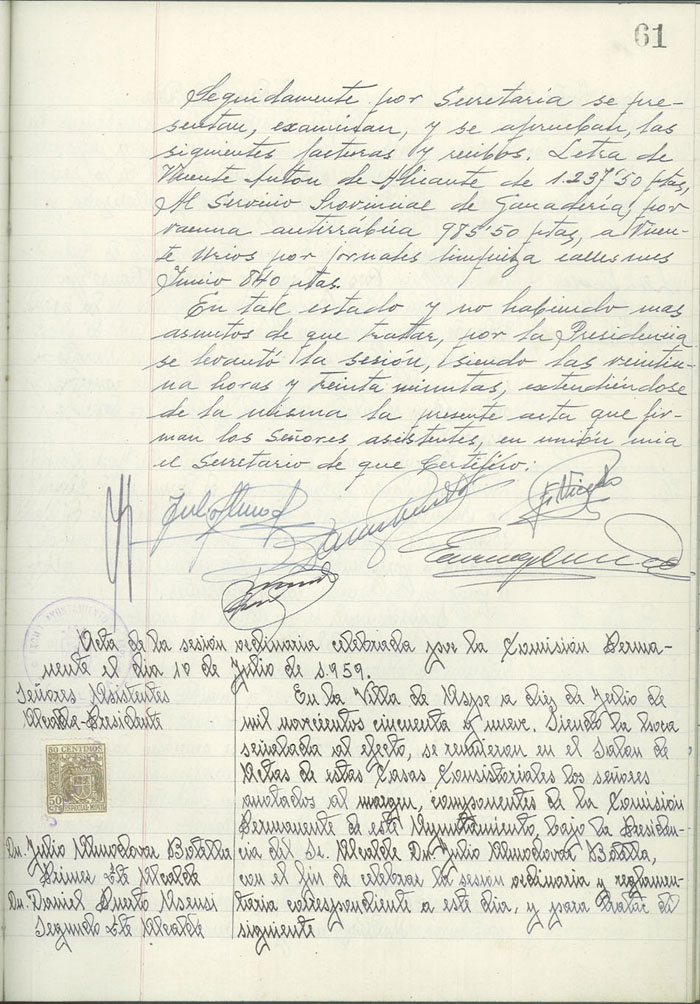 61
Seguidamente por Secretaria se pre-
sentan, examinan, y se aprueban, las
siguientes facturas y recibos. Letra de
Vicente Antón de Alicante de 1.237'50 ptas,
Al Servicio Provincial de Ganadería, por
vacuna antirrábica 975'50 ptas, a Vicen-
te Urios por jornales limpieza calles mes
Junio 840 ptas.
En tal estado y no habiendo mas
asuntos de que tratar, por la Presidencia
se levantó la sesión, siendo las veintiu-
na horas y treinta minutos, extendiéndose
de la misma la presente acta que fir-
man los Señores asistentes, en unión mia
el Secretario de que Certifico:
Acta de la sesión ordinaria celebrada por la Comisión Perma-
nente el dia 10 de Julio de 1.959.
Señores Asistentes
Alcalde-Presidente
50 CENTIMOS
50
Dn. Julio Almodovar Botella
Primer Tte Alcalde
Dn. Daniel Puerto Asensi
Segundo Tte Alcalde
En la Villa de Aspe a diez de Julio de
mil novecientos cincuenta y nueve. Siendo la hora
señalada al efecto, se reunieron en el Salon de
Actas de estas Casas Consistoriales los señores
anotados al margen, componentes de la Comisión
Permanente de este Ayuntamiento, bajo la Presiden-
cia del Sr. Alcalde Dn. Julio Almodovar Botella,
con el fin de celebrar la sesión ordinaria y reglamen-
taria correspondiente a este dia, y para tratar del
siguiente